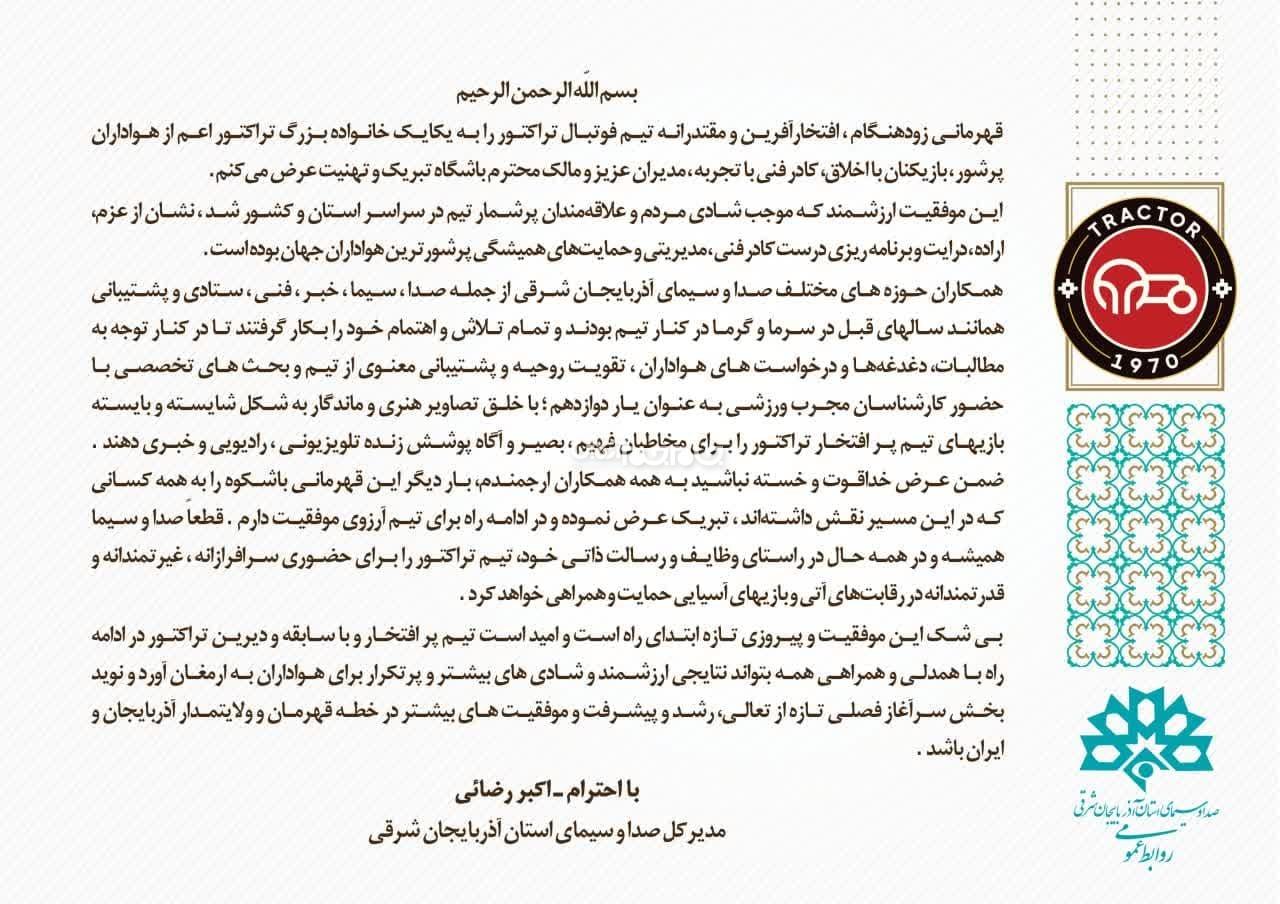 بسم اللّه الرحمن الرحیم
قهرمانی زودهنگام ، افتخارآفرین و مقتدرانه تیم فوتبال تراکتور را به یکایک خانواده بزرگ تراکتور اعم از هواداران
پرشور ، بازیکنان با اخلاق، کادر فنی با تجربه ، مدیران عزیز و مالک محترم باشگاه تبریک و تهنیت عرض می کنم .
این موفقیت ارزشمند که موجب شادی مردم و علاقه‌مندان پرشمار تیم در سراسر استان و کشور شد ، نشان از عزم،
اراده، درایت و برنامه ریزی درست کادر فنی ، مدیریتی و حمایت‌های همیشگی پرشور ترین هواداران جهان بوده است .
همکاران حوزه های مختلف صدا و سیمای آذربایجان شرقی از جمله صدا ، سیما ، خبر ، فنی ، ستادی و پشتیبانی
همانند سالهای قبل در سرما و گرما در کنار تیم بودند و تمام تلاش و اهتمام خود را بکار گرفتند تا در کنار توجه به
مطالبات، دغدغه‌ها و درخواست های هواداران ، تقویت روحیه و پشتیبانی معنوی از تیم و بحث های تخصصی با
حضور کارشناسان مجرب ورزشی به عنوان یار دوازدهم ؛ با خلق تصاویر هنری و ماندگار به شکل شایسته و بایسته
بازیهای تیم پر افتخار تراکتور را برای مخاطبان فهیم ، بصیر و آگاه پوشش زنده تلویزیونی ، رادیویی و خبری دهند .
ضمن عرض خداقوت و خسته نباشید به همه همکاران ارجمندم، بار دیگر این قهرمانی باشکوه را به همه کسانی
که در این مسیر نقش داشته‌اند ، تبریک عرض نموده و در ادامه راه برای تیم آرزوی موفقیت دارم . قطعاً صدا و سیما
همیشه و در همه حال در راستای وظایف و رسالت ذاتی خود، تیم تراکتور را برای حضوری سرافرازانه ، غیرتمندانه و
قدرتمندانه در رقابت‌های آتی و بازیهای آسیایی حمایت و همراهی خواهد کرد .
بی شک این موفقیت و پیروزی تازه ابتدای راه است و امید است تیم پر افتخار و با سابقه و دیرین تراکتور در ادامه
راه با همدلی و همراهی همه بتواند نتایجی ارزشمند و شادی های بیشتر و پرتکرار برای هواداران به ارمغان آورد و نوید
بخش سرآغاز فصلی تازه از تعالی، رشد و پیشرفت و موفقیت های بیشتر در خطه قهرمان و ولایتمدار آذربایجان و
ایران باشد .
با احترام - اکبر رضائی
مدیرکل صدا و سیمای استان آذربایجان شرقی
TRACTOR
1970
صدا و سیمای استان آذربایجان شرقی
روابط عمومی